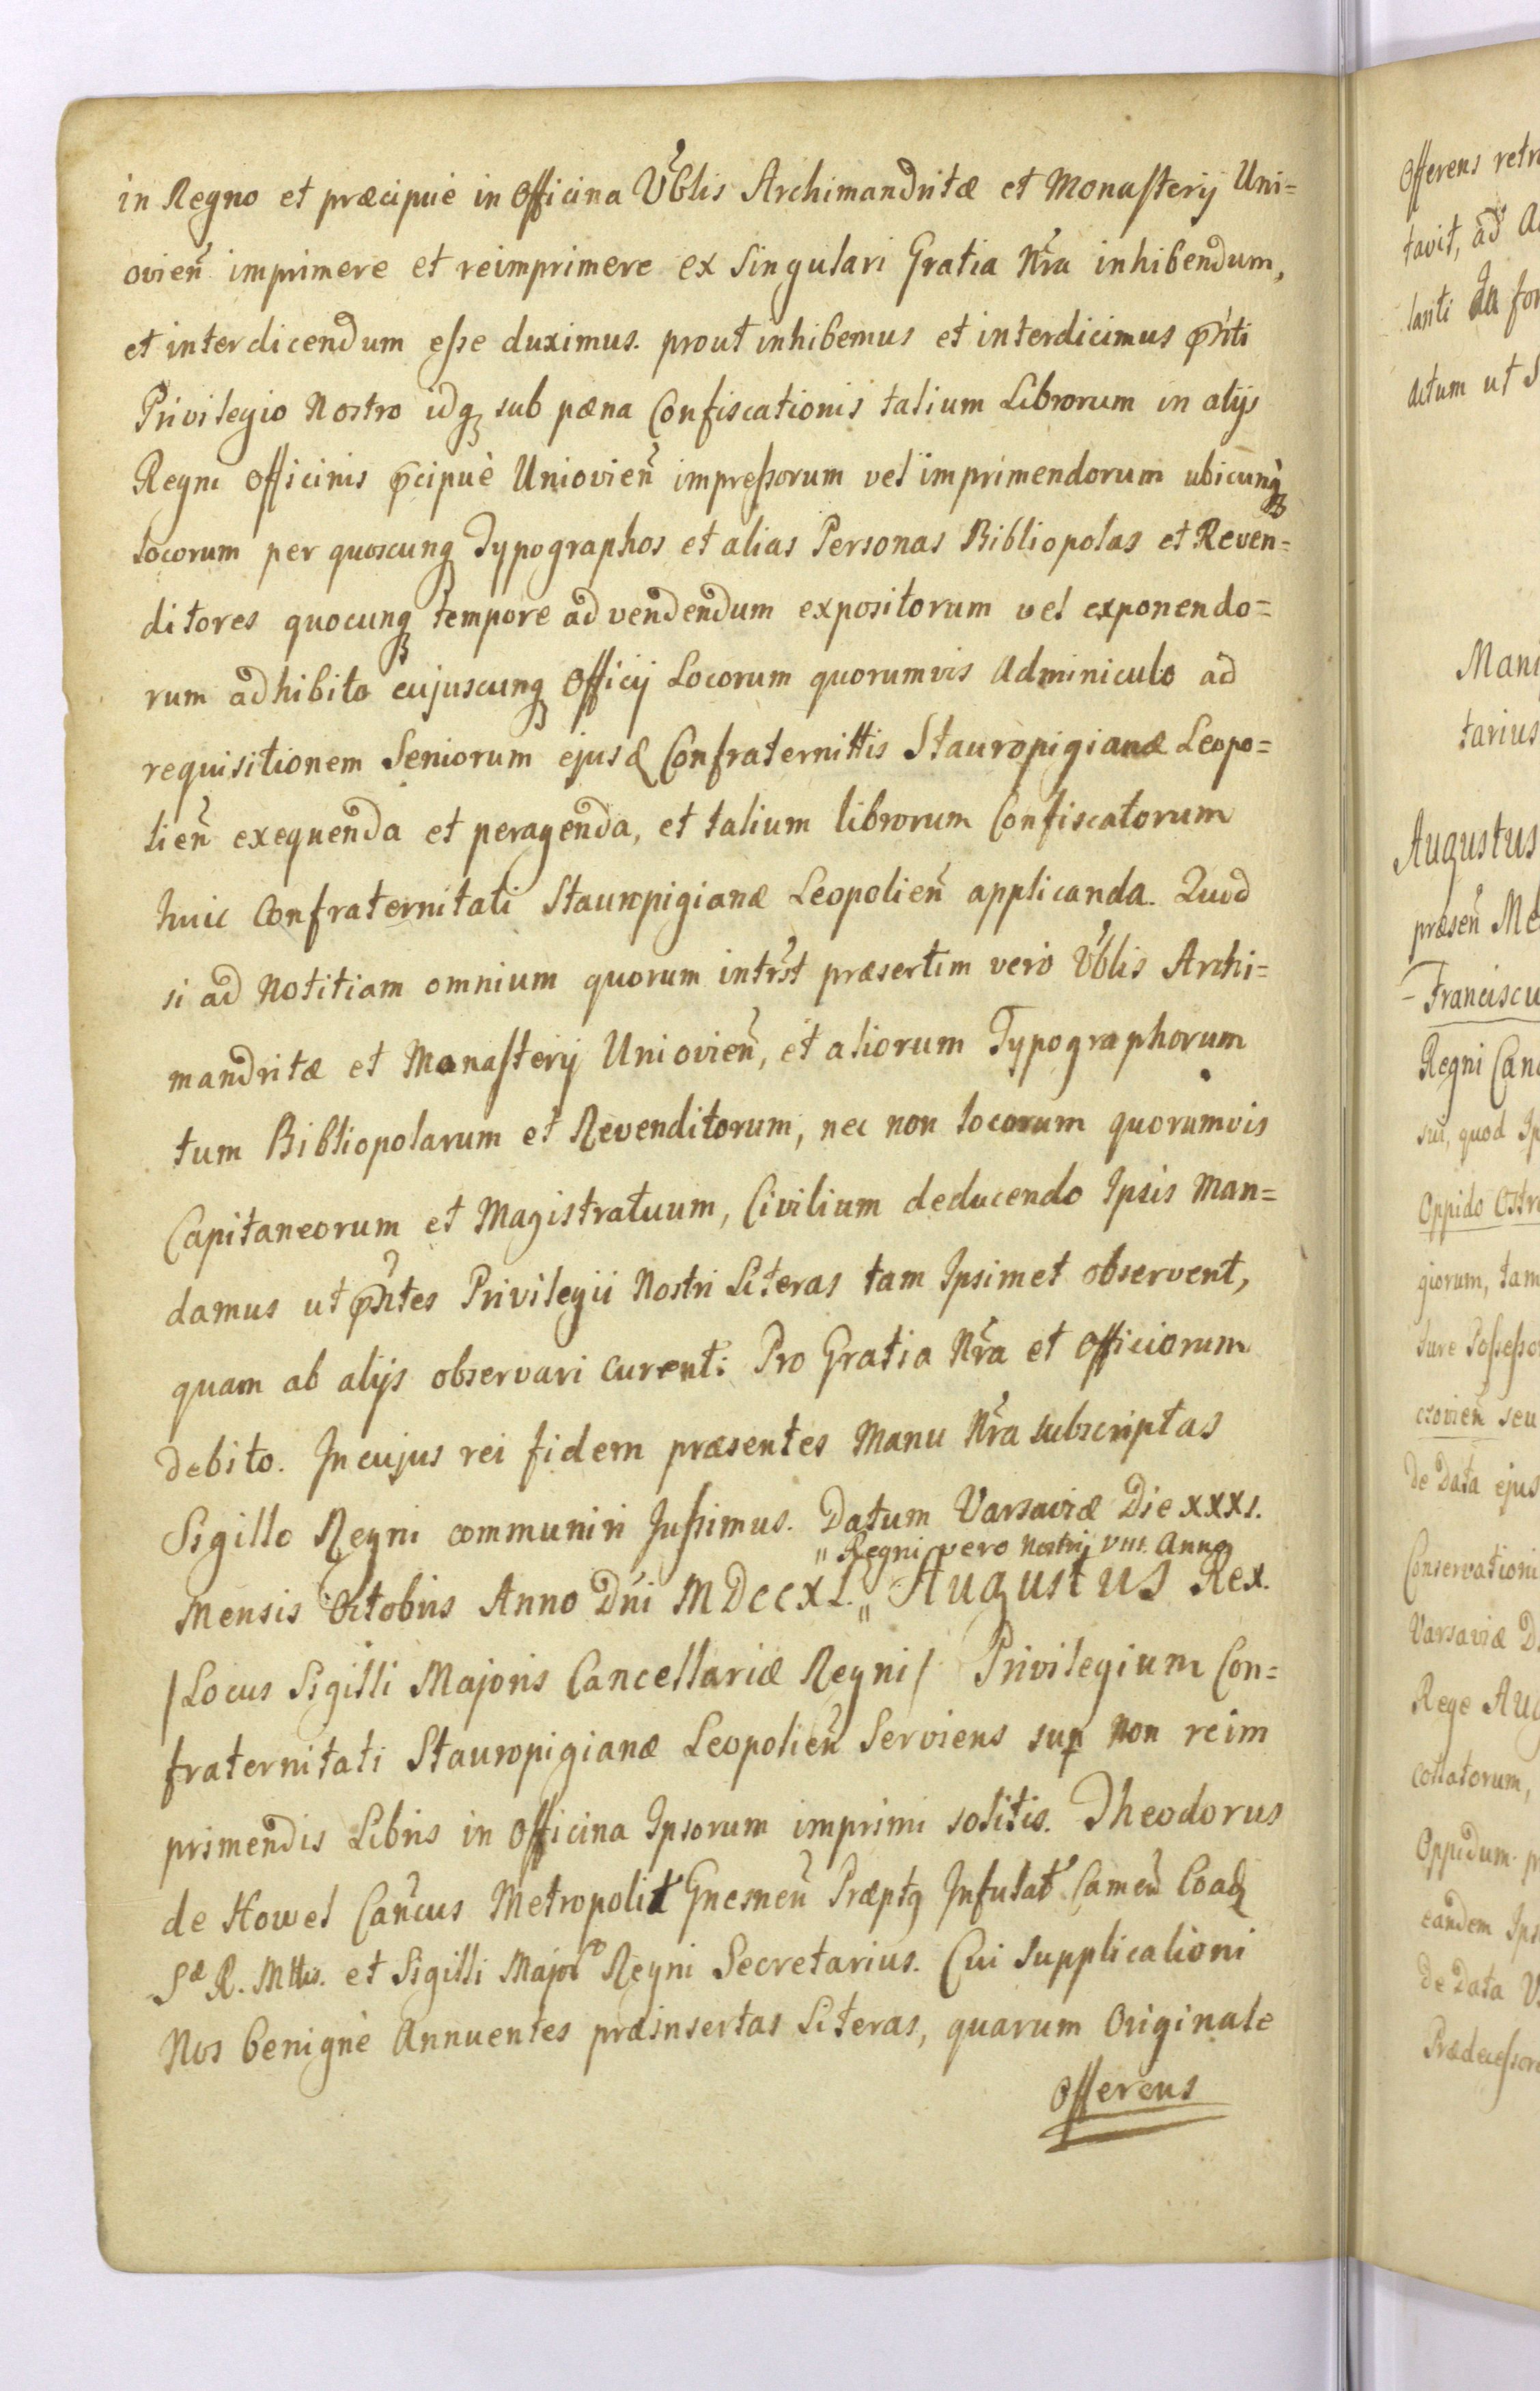 in Regno et præcipuè in Officina Vblis Archimandritæ et Monasterij Uni=
ovien̄ imprimere et reimprimere ex Singulari Gratia Nra inhibendum,
et interdicendum esse duximus. prout inhibemus et interdicimus pñti
Privilegio Nostro idq; sub pœna Confiscationis talium Librorum in alijs
Regni Officinis pcipuè Uniovien̄ impressorum vel imprimendorum ubicunq;
locorum per quoscunq; Typographos et alias Personas Bibliopolas et Reven=
ditores quocunq; tempore ad vendendum expositorum vel exponendo=
rum adhibito cujuscunq; Officij Locorum quorumvis Adminiculo ad
requisitionem Seniorum ejusd Confraternittis Stauropigianæ Leopo=
lien̄ exequenda et peragenda, et talium librorum Confiscatorum
huic Confraternitati Stauropigianæ Leopolien̄ applicanda. Quod
si ad Notitiam omnium quorum intrst præsertim verò Vblis Archi=
mandritæ et Monasterij Uniovien̄, et aliorum Typographorum
tum Bibliopolarum et Revenditorum, nec non locorum quorumvis
Capitaneorum et Magistratuum, Civilium deducendo Ipsis Man=
damus ut pñtes Privilegii Nostri Literas tam Ipsimet observent,
quam ab alijs observari curent: Pro Gratia Nra et Officiorum
debito. In cujus rei fidem præsentes Manu Nra subscriptas
Sigillo Regni communiri Jussimus. Datum Varsaviæ Die XXXI.
" Regni vero Nostri VIII. Anno
Mensis Octobris Anno Dni MDCCXL. " Augustus Rex.
/Locus Sigilli Majoris Cancellariæ Regni/ Privilegium Con=
fraternitati Stauropigianæ Leopolien̄ Serviens sup Non reim
primendis Libris in Officina Ipsorum imprimi solitis. Theodorus
de Howel Can̄cus Metropolit Gnesnen̄ Præptq Infulat Camen̄ Coadj
Sæ R. Mttis. et Sigilli Major Regni Secretarius. Cui Supplicationi
Nos benignè Annuentes præinsertas Literas, quarum Originale
Offerens
Offerens
tavit, ad
lanti In
Actum ut
tarius
Augustus
præsen̄
Franciscu
Regni Can
sui, quod
Oppido Ostr
giorum, tam
ture Possesso
czovien̄ seu
de Data ejus
Conservationi
Varsaviæ D
Rege Aug
Collatorum,
Oppidum
eandem Ips
de Data V
Prædecessor